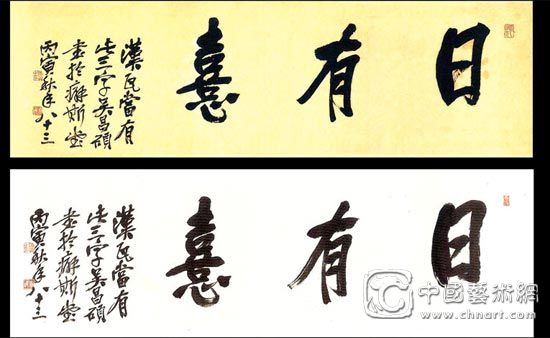 日有憙
漢瓦當有
此三字吳昌碩
書於癖斯堂
丙寅秋年八十三
日有憙
漢瓦當有
此三字吳昌碩
書於癖斯堂
丙寅秋年八十三
中國藝術網
www.chnart.com